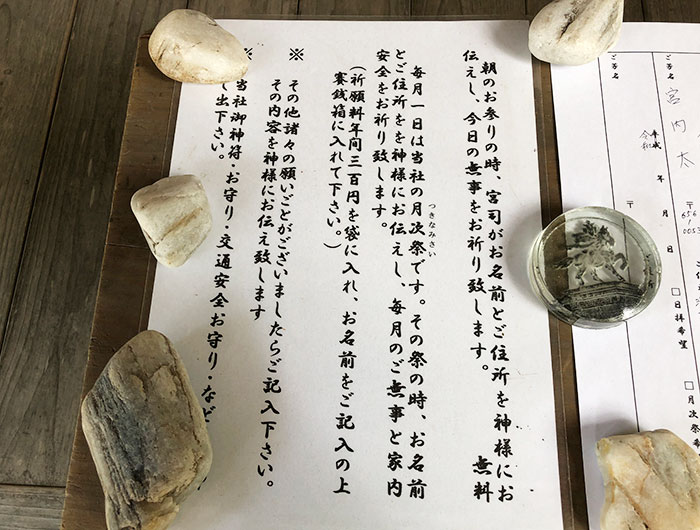 朝のお参りの時、宮司がお名前とご住所を神様にお
伝えし、今日の無事をお祈り致します。 無料
毎月一日は当社の月次祭です。その祭の時、お名前
つきなみさい
とご住所をを神様にお伝えし、毎月のご無事と家内
安全をお祈り致します。
(祈願料年間三百円を袋に入れ、お名前をご記入の上
賽銭箱に入れて下さい。)
※ その他諸々の願いごとがございましたらご記入下さい。
その内容を神様にお伝え致します
※ 当社御神符・お守り・交通安全お守り・など
し出下さい。
□日拝希望 □月次祭
〒 651 0053
ご芳名 宮内 太
平成 年 月 日
令和
〒
ご芳名